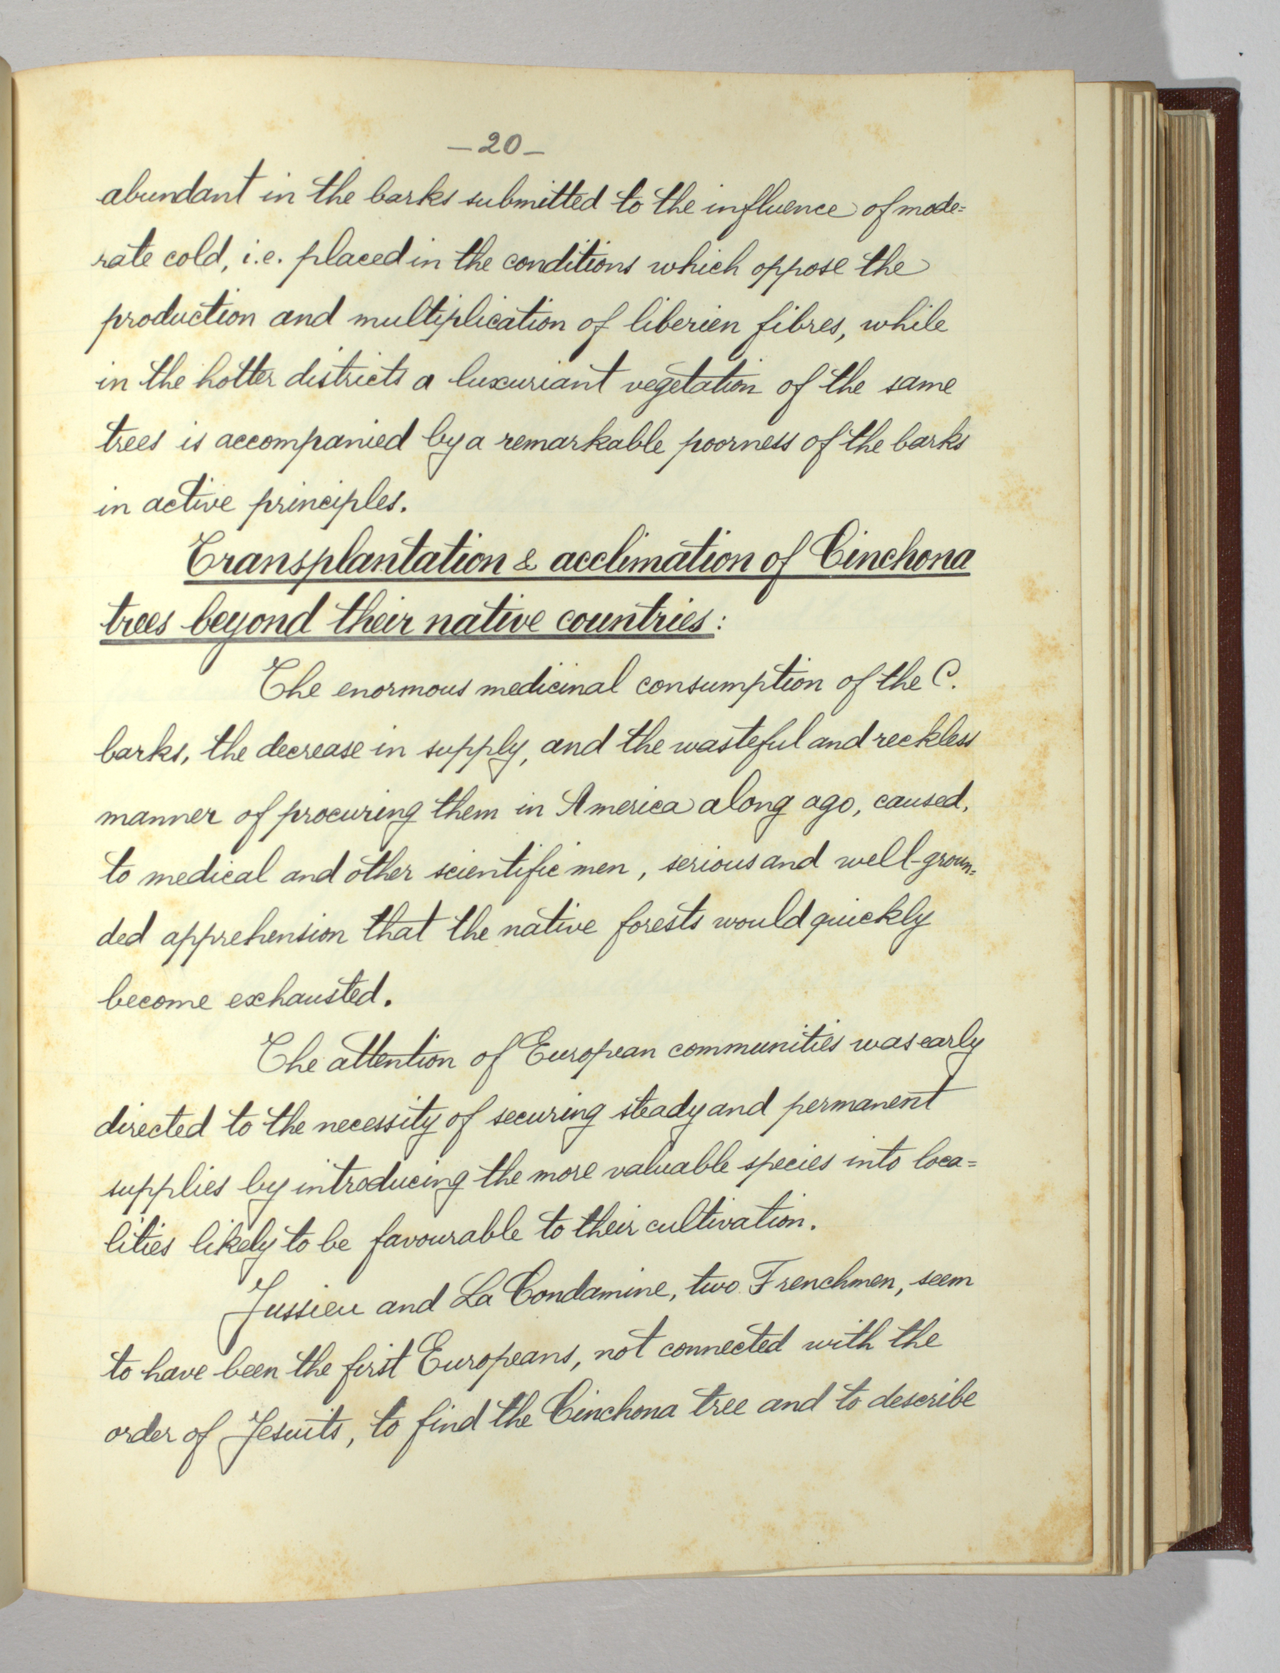 —20—
abundant in the barks submitted to the influence of mode=
rate cold, i.e. placed in the conditions which oppose the
production and multiplication of liberien fibres, while
in the hotter districts a luxuriant vegetation of the same
trees is accompanied by a remarkable poorness of the barks
in active principles.
Transplantation & acclimation of Cinchona
trees beyond their native countries:
The enormous medicinal consumption of the C.
barks, the decrease in supply, and the wasteful and reckless
manner of procuring them in America along ago, caused,
to medical and other scientific men, serious and well-groun=
ded apprehension that the native forests would quickly
become exhausted.
The attention of European communities was early
directed to the necessity of securing steady and permanent
supplies by introducing the more valuable species into loca=
lities likely to be favourable to their cultivation.
Jussieu and La Condamine, two Frenchmen, seem
to have been the first Europeans, not connected with the
order of Jesuits, to find the Cinchona tree and to describe